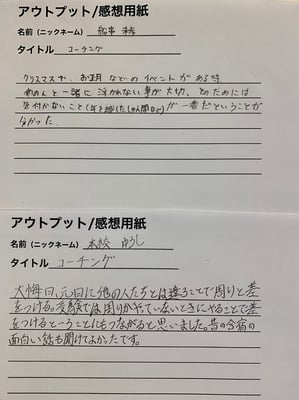 アウトプット/感想用紙
名前（ニックネーム）
タイトル コーチング
クリスマスや、お正月 などの イベントが ある時
他の人と一緒に 浮かれない事が大切、そのためには
気付かないこと(年を越したしゅん間など)が 一番だということが
分かった.
アウトプット/感想用紙
名前（ニックネーム） 本校 ゆうし
タイトル コーチング
大晦日、元日に他の人たちとは違うことで周りと差
をつける。受験では周りがやっていないときにやることで差
をつけるということにもつながると思いました。昔の合宿の
面白い話も聞けてよかったです。